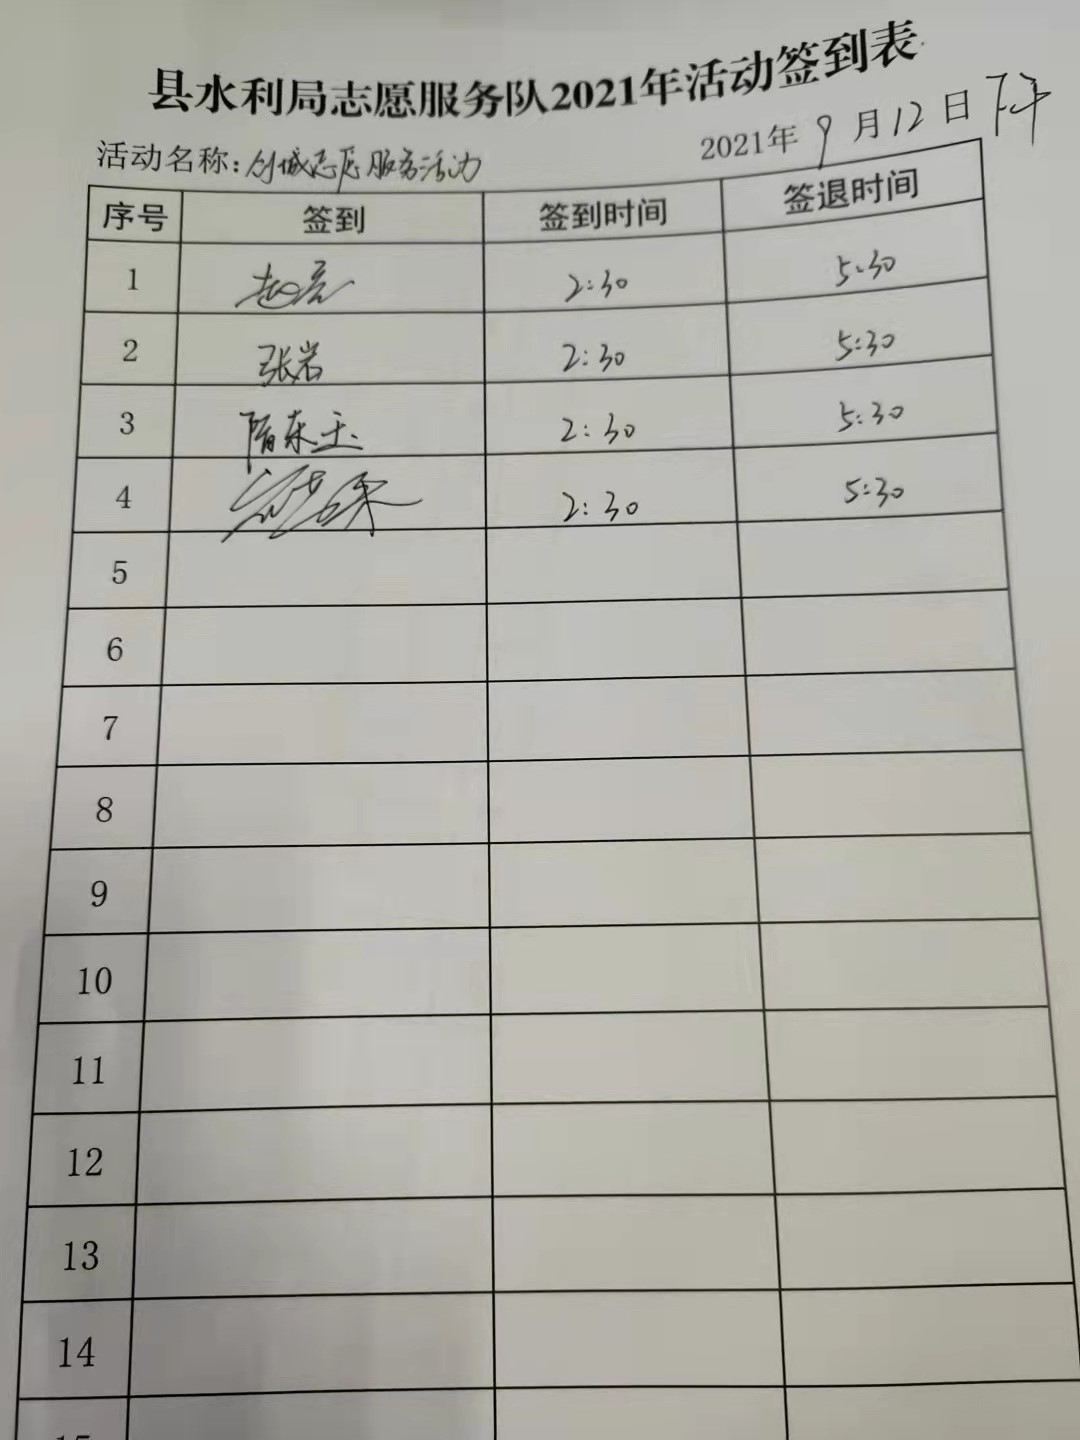 县水利局志愿服务队2021年活动签到表
2021年9月12日下午
活动名称:创城志愿服务活动
序号 签到 签到时间 签退时间
1 2:30 5:30
2 张岩 2:30 5:30
3 隋东玉 2:30 5:30
4 2:30 5:30
5
6
7
8
9
10
11
12
13
14
15